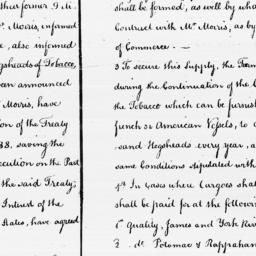 ther former J. M.
Morris, informed
e, also informed
gsheads of Tobacco,
an announced
Morris, have
tion of the Treaty
88, saving the
ecution on the Part
the said Treaty;
Interest of the
States, have agreed
shall be formed, as well by wha
Contract with Mr. Morris, as by
of Commerce. —
3 To secure this Supply, the Farm
during the Continuation of the C
the Tobacco which can be furnish
french or American Vessels, to
sand Hogsheads every year, a
same Conditions stipulated with
4th In Cases where Cargoes shal
shall be paid for at the followi
1st quality, James and York Riv
2 do. Potomac & Rappahan